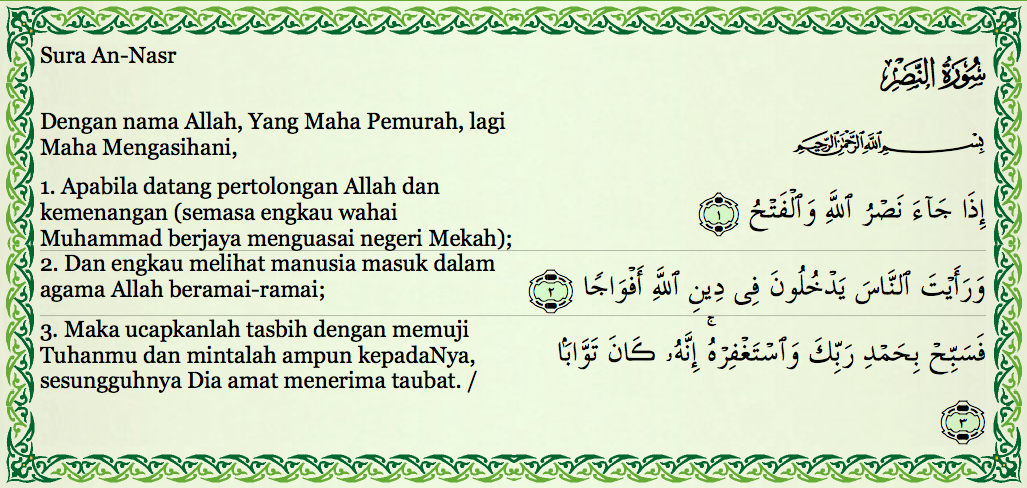 Sura An-Nasr
سُورَةُ النَّصْرِ
Dengan nama Allah, Yang Maha Pemurah, lagi
Maha Mengasihani,
بِسْمِ ٱللَّهِ ٱلرَّحْمَٰنِ ٱلرَّحِيمِ
1. Apabila datang pertolongan Allah dan
kemenangan (semasa engkau wahai
Muhammad berjaya menguasai negeri Mekah);
إِذَا جَآءَ نَصْرُ ٱللَّهِ وَٱلْفَتْحُ ١
2. Dan engkau melihat manusia masuk dalam
agama Allah beramai-ramai;
وَرَأَيْتَ ٱلنَّاسَ يَدْخُلُونَ فِى دِينِ ٱللَّهِ أَفْوَاجًا ٢
3. Maka ucapkanlah tasbih dengan memuji
Tuhanmu dan mintalah ampun kepadaNya,
sesungguhnya Dia amat menerima taubat. /
فَسَبِّحْ بِحَمْدِ رَبِّكَ وَٱسْتَغْفِرْهُ ۚ إِنَّهُۥ كَانَ تَوَّابًۢا
٣